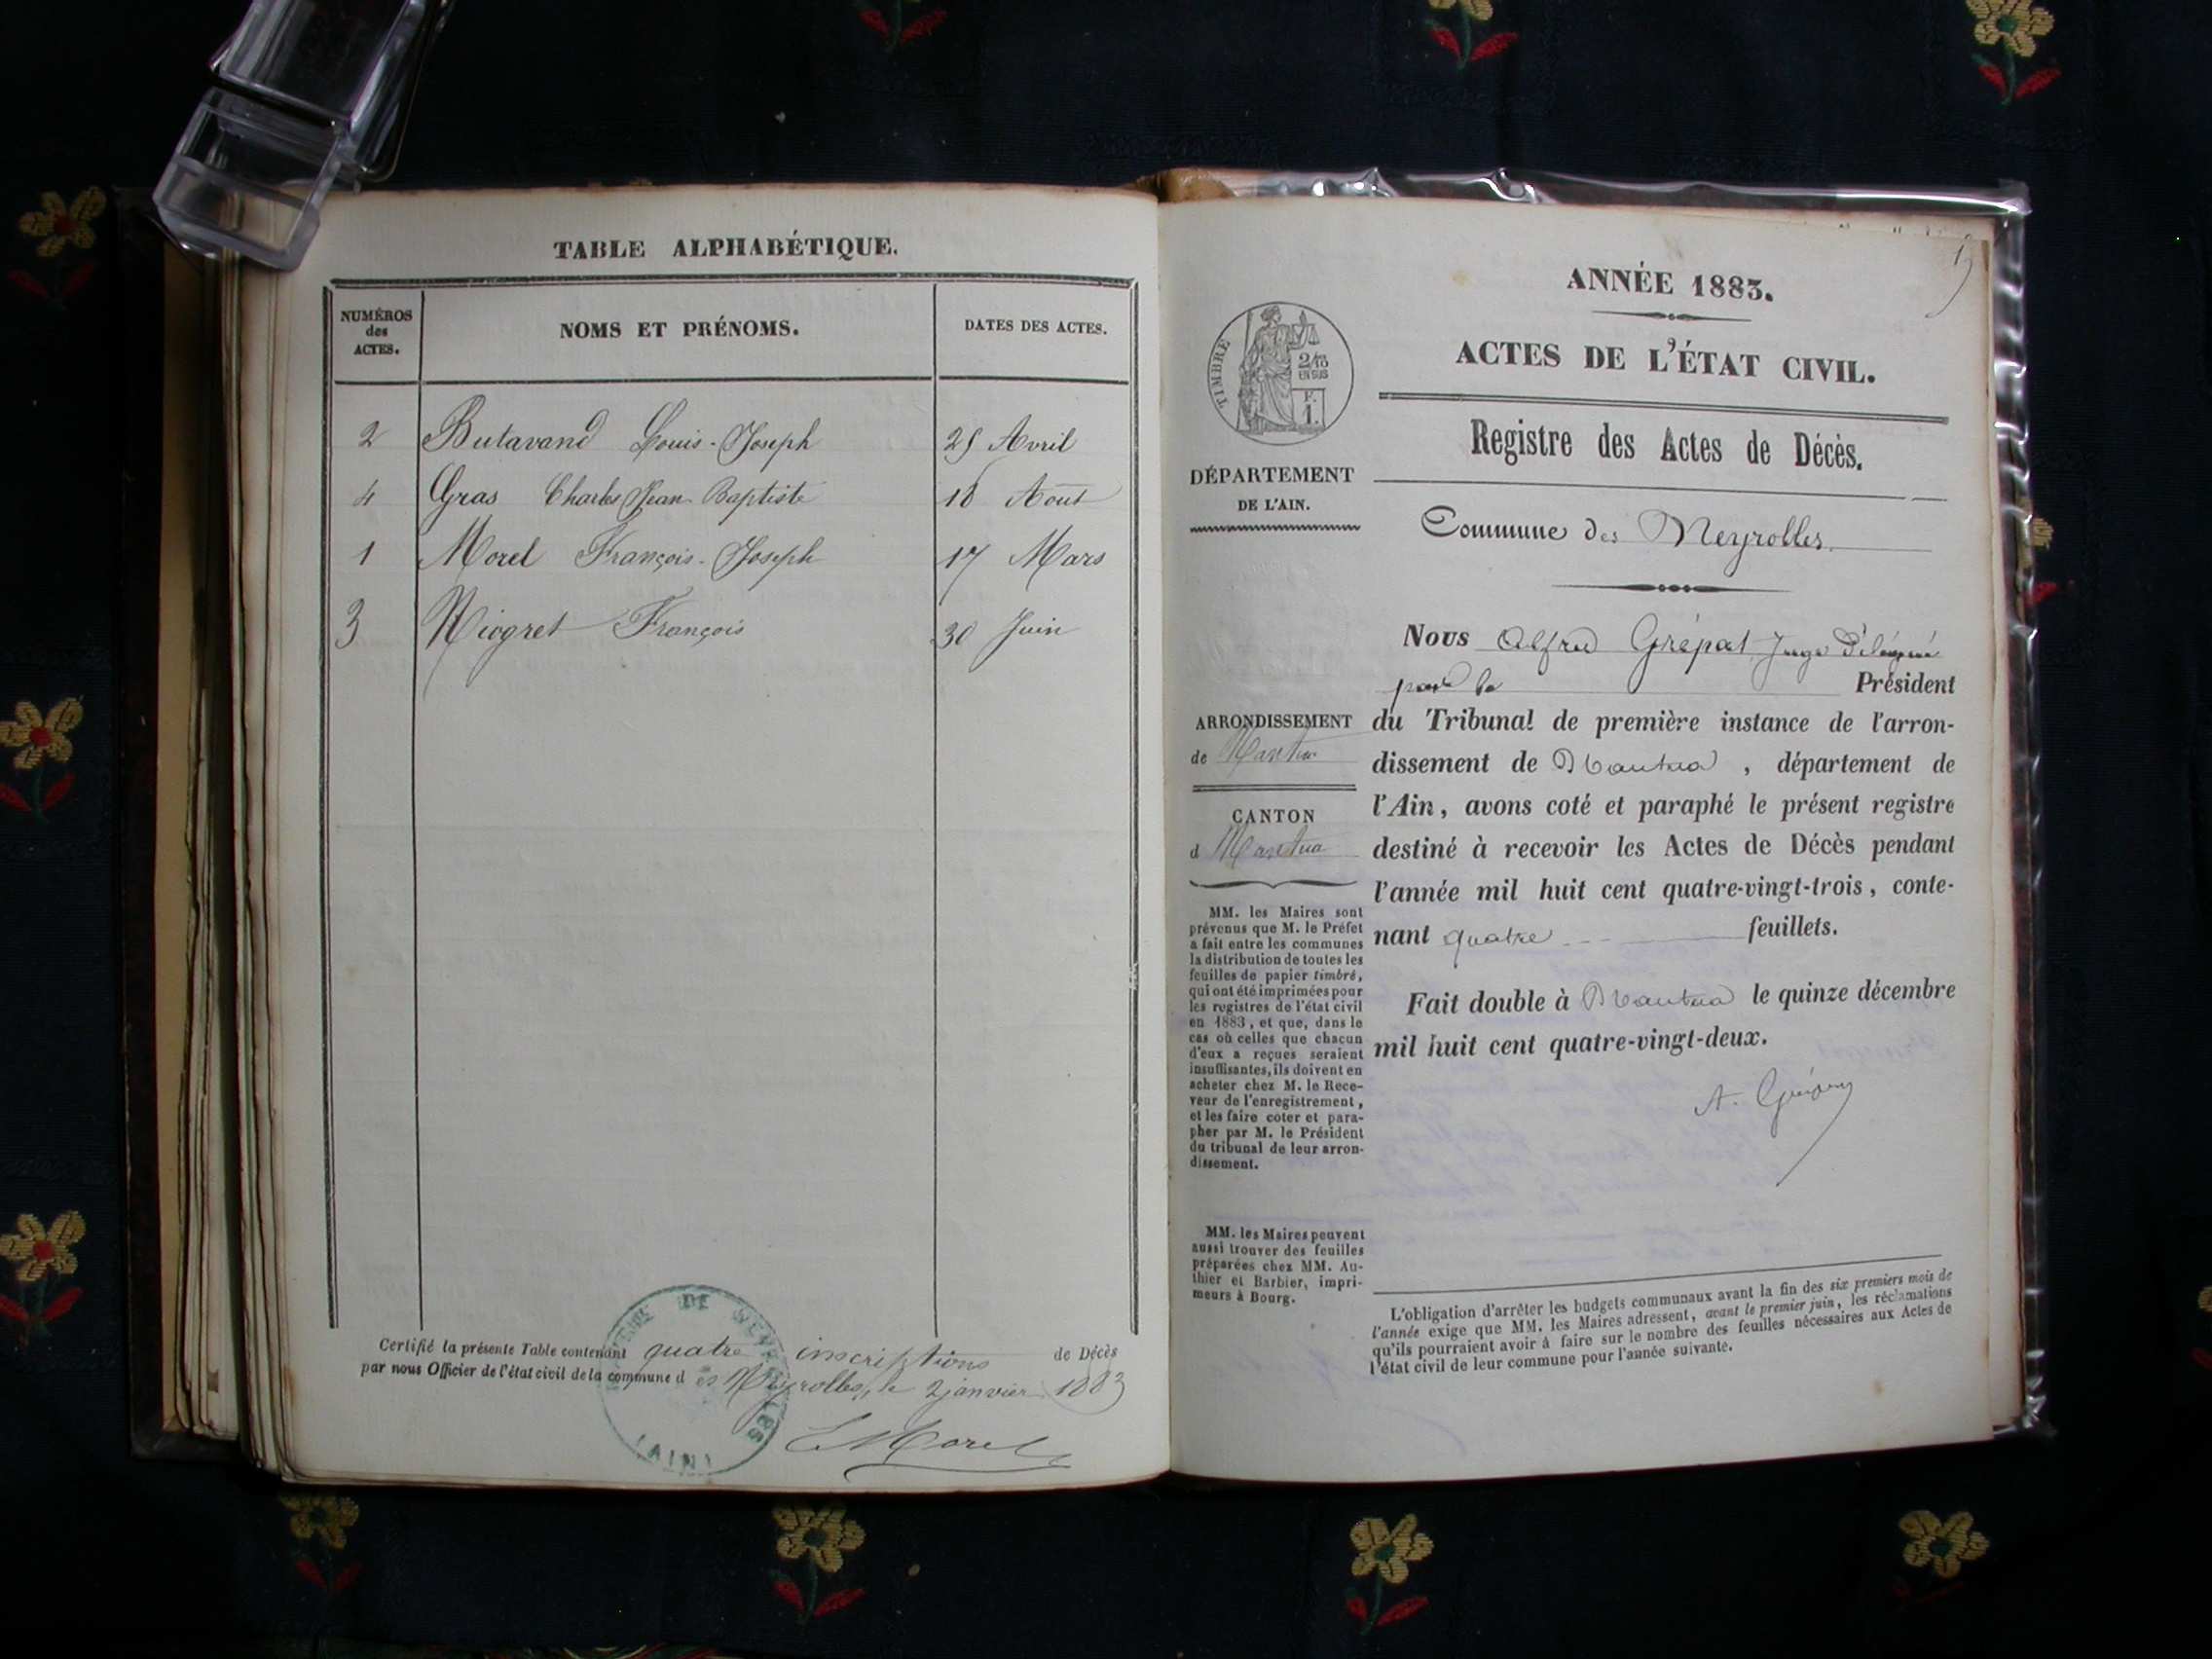 TABLE ALPHABÉTIQUE.
NUMÉROS des ACTES.
NOMS ET PRÉNOMS.
DATES DES ACTES.
2 Butavand Louis-Joseph 25 Avril
4 Gras Charles Jean-Baptiste 18 Août
1 Morel François-Joseph 17 Mars
3 Niogret François 30 Juin
Certifié la présente Table contenant quatre inscriptions de Décès
par nous Officier de l'état civil de la commune des Neyrolles, le 2 janvier 1883
E Morel
(AIN)
ANNÉE 1883.
ACTES DE L'ÉTAT CIVIL.
Registre des Actes de Décès.
Commune des Neyrolles.
TIMBRE
2/10
EN SUS
F.
1.
DÉPARTEMENT
DE L'AIN.
ARRONDISSEMENT
de Nantua
CANTON
d Nantua
MM. les Maires sont
prévenus que M. le Préfet
a fait entre les communes
la distribution de toutes les
feuilles de papier timbré,
qui ont été imprimées pour
les registres de l'état civil
en 1883, et que, dans le
cas où celles que chacun
d'eux a reçues seraient
insuffisantes, ils doivent en
acheter chez M. le Rece-
veur de l'enregistrement,
et les faire coter et para-
pher par M. le Président
du tribunal de leur arron-
dissement.
MM. les Maires peuvent
aussi trouver des feuilles
préparées chez MM. Au-
thier et Barbier, impri-
meurs à Bourg.
Nous Alfred Juge Délégué
par le Président
du Tribunal de première instance de l'arron-
dissement de Nantua, département de
l'Ain, avons coté et paraphé le présent registre
destiné à recevoir les Actes de Décès pendant
l'année mil huit cent quatre-vingt-trois, conte-
nant quatre feuillets.
Fait double à Nantua le quinze décembre
mil huit cent quatre-vingt-deux.
L'obligation d'arrêter les budgets communaux avant la fin des six premiers mois de
l'année exige que MM. les Maires adressent, avant le premier juin, les réclamations
qu'ils pourraient avoir à faire sur le nombre des feuilles nécessaires aux Actes de
l'état civil de leur commune pour l'année suivante.